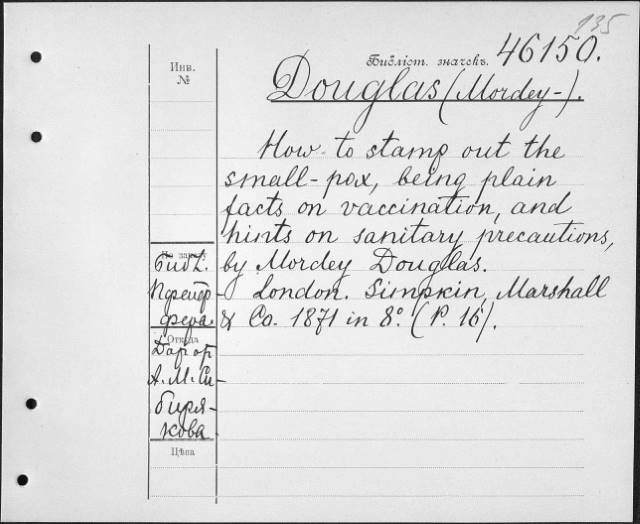 135
Инв.
№
Библіот. значекъ. 46150.
Douglas (Mordey-).
How to stamp out the
small-pox, being plain
facts on vaccination, and
hints on sanitary precautions,
by Mordey Douglas.
London. Simpkin, Marshall
& Co. 1871 in 8º. (P. 16).
Библ.
Пфейф-
фера.
Откуда
Дар от
А. М. Си-
биря-
кова
Цѣна